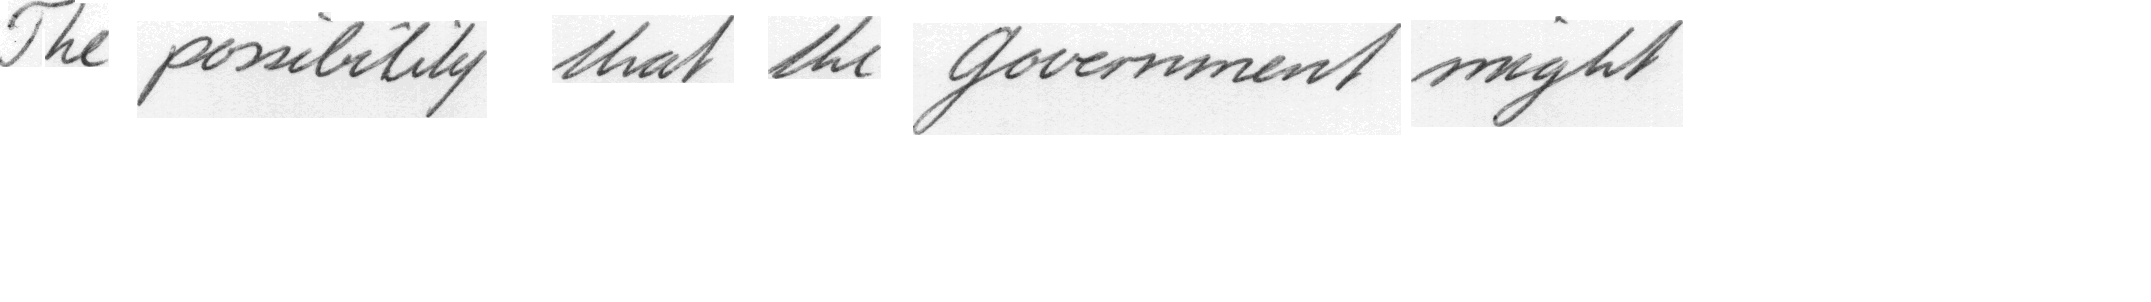 The possibility that the Government might